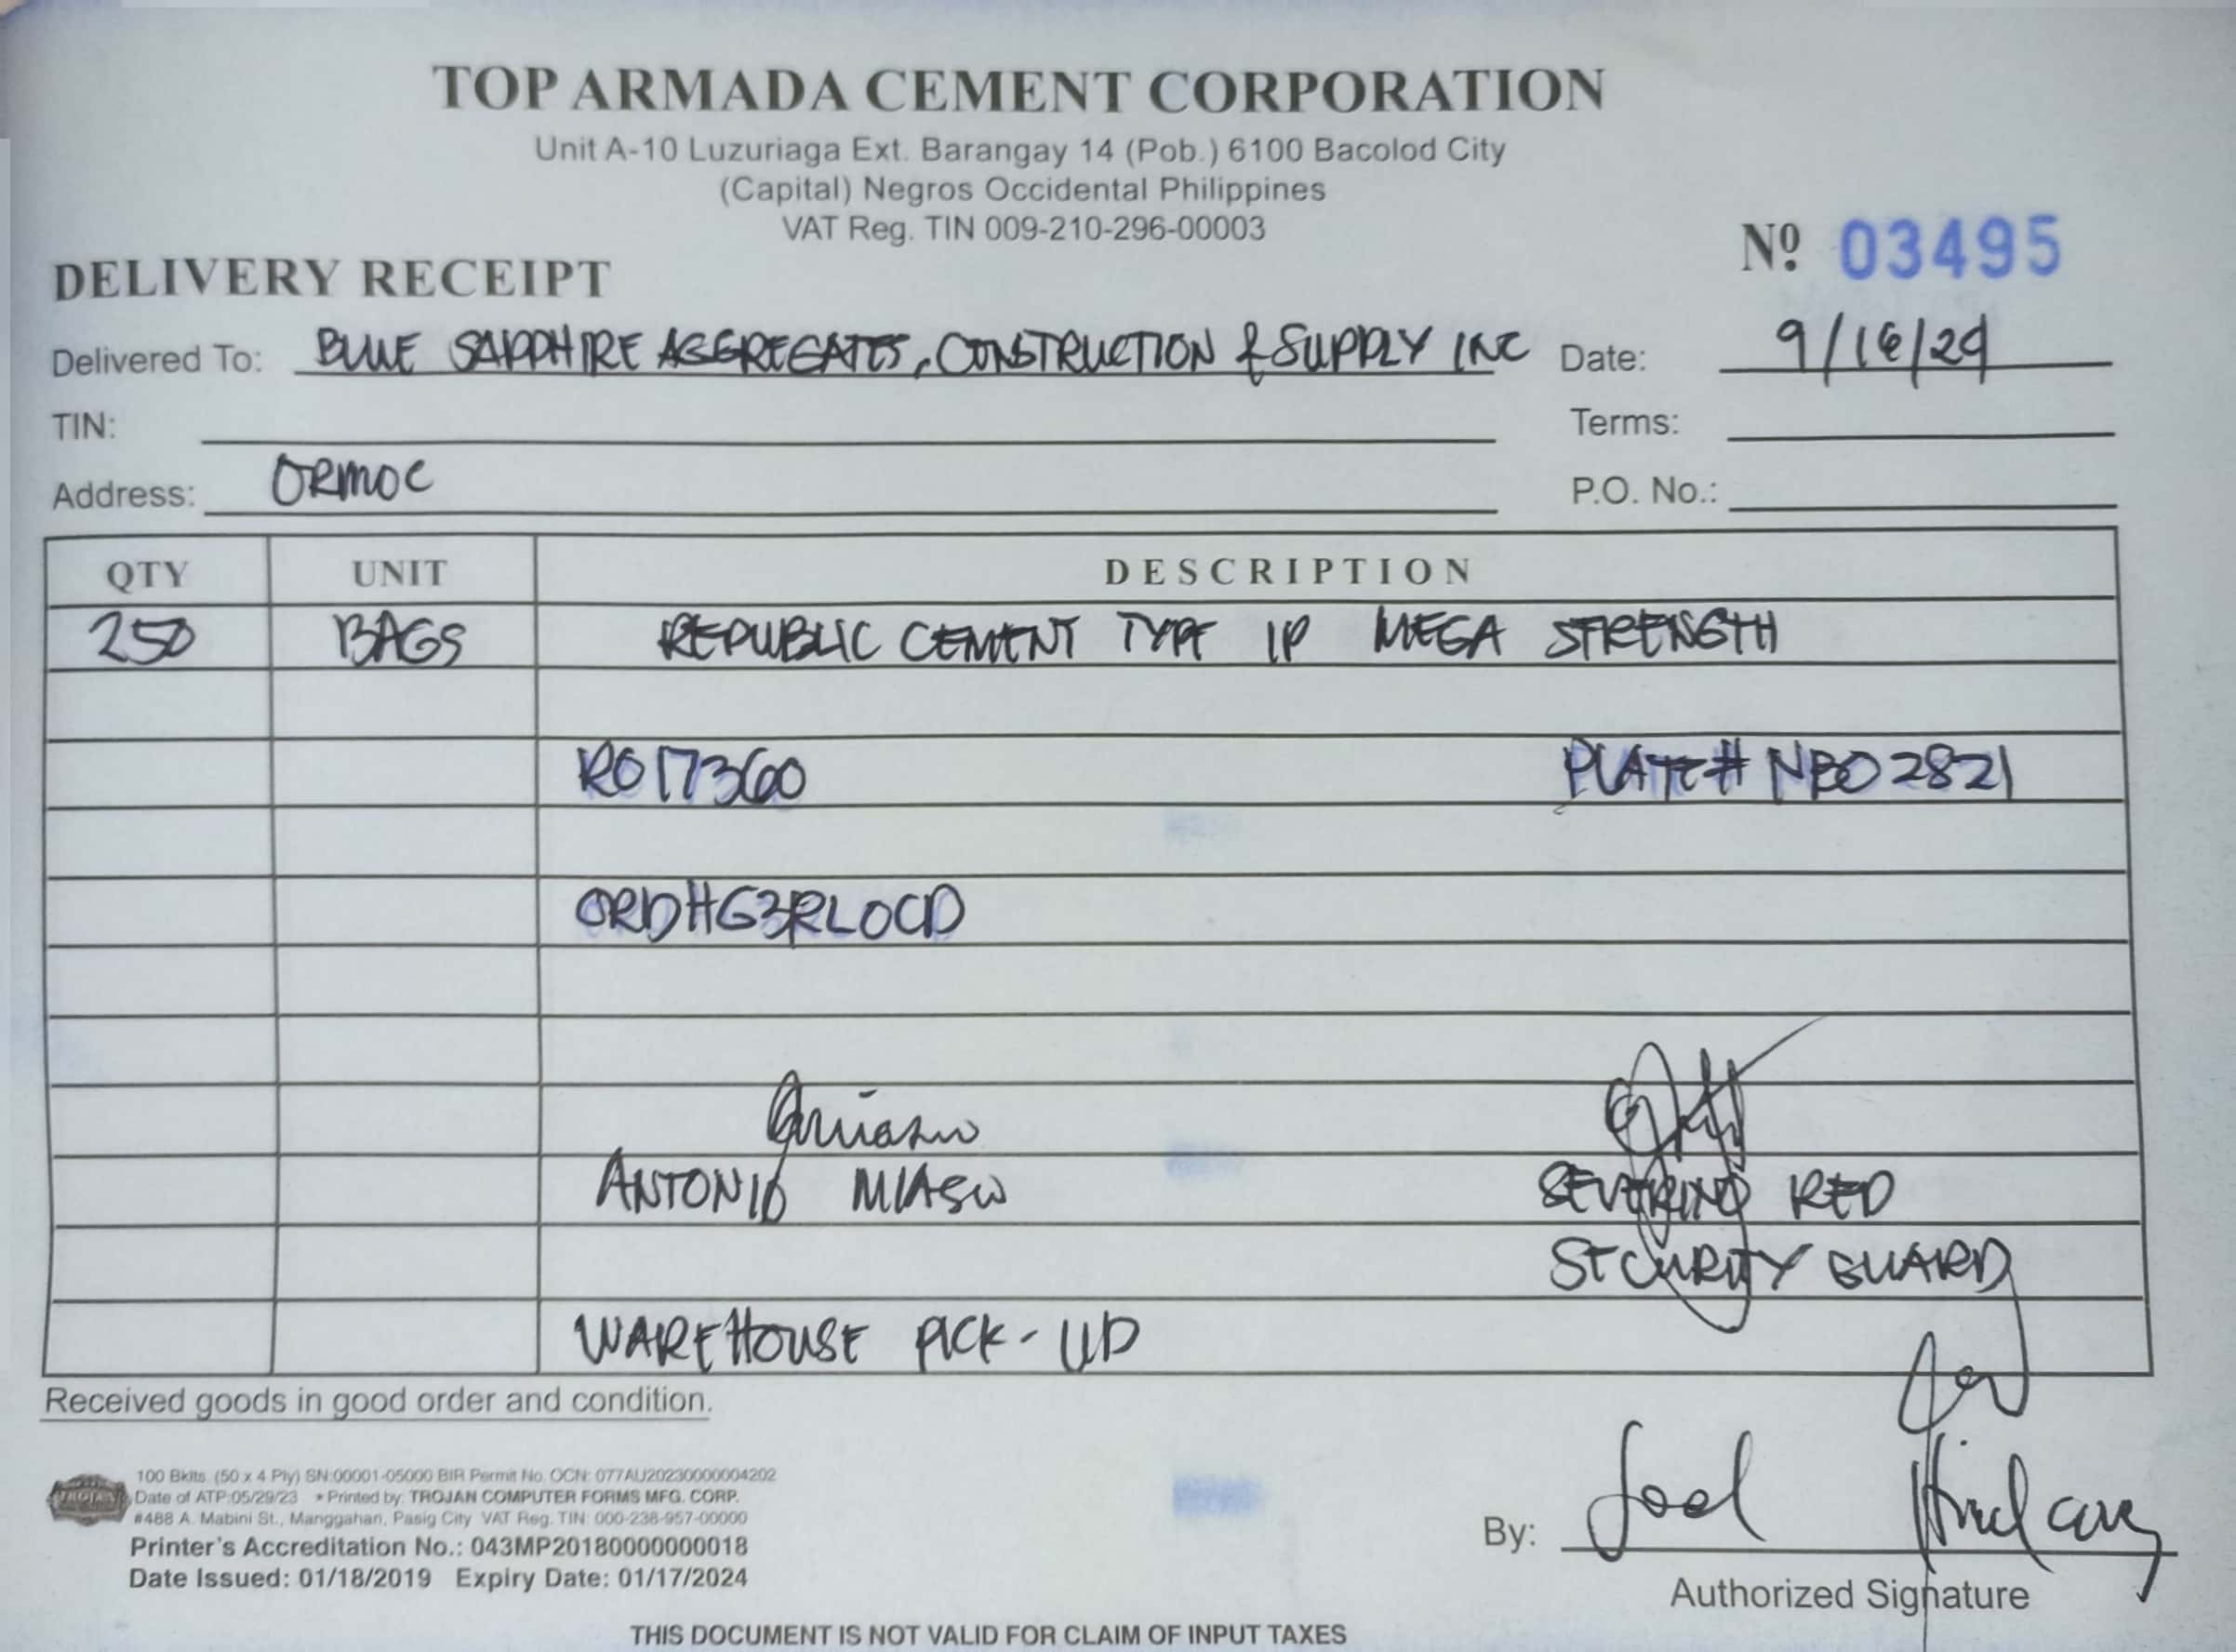 TOP ARMADA CEMENT CORPORATION
Unit A-10 Luzuriaga Ext. Barangay 14 (Pob.) 6100 Bacolod City
(Capital) Negros Occidental Philippines
VAT Reg. TIN 009-210-296-00003
Nº 03495
DELIVERY RECEIPT
Delivered To: BLUE SAPPHIRE AGGREGATES, CONSTRUCTION & SUPPLY INC Date: 9/16/24
TIN: Terms:
Address: ORMOC P.O. No.:
QTY UNIT DESCRIPTION
250 BAGS REPUBLIC CEMENT TYPE 1P MEGA STRENGTH
RO17360 PLATE# NBO2821
ORDHG3RLOCD
ANTONIO SEVERINO RED
SECURITY GUARD
WAREHOUSE PICK-UP
Received goods in good order and condition.
100 Bklts. (50 x 4 Ply) SN:00001-05000 BIR Permit No. OCN: 077AU20230000004202
Date of ATP:05/29/23 * Printed by: TROJAN COMPUTER FORMS MFG. CORP.
#488 A. Mabini St., Manggahan, Pasig City VAT Reg. TIN: 000-238-957-00000
Printer's Accreditation No.: 043MP20180000000018
Date Issued: 01/18/2019 Expiry Date: 01/17/2024
By: Joel
Authorized Signature
THIS DOCUMENT IS NOT VALID FOR CLAIM OF INPUT TAXES